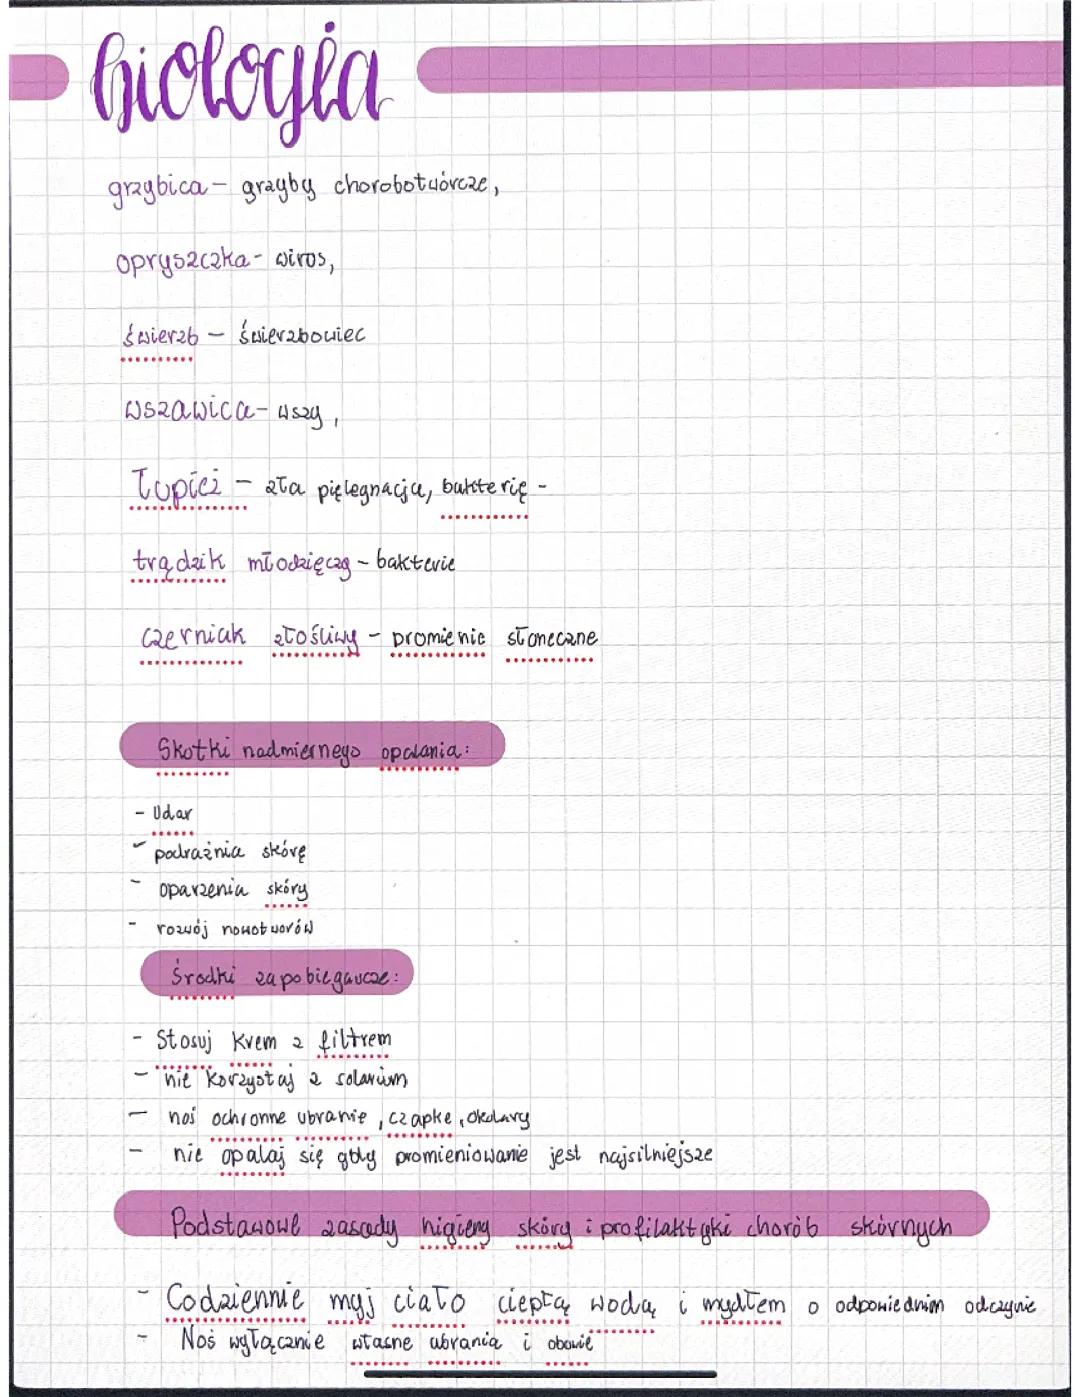 biologia
grzybica - grzyby chorobotwórcze,
opryszczka - wirus,
świerzb - świerzbowiec
wszawica - wszy,
Łupież - zła pielęgnacja, bakterię -
trądzik młodzięczy - bakterie
czerniak złośliwy - promienie słoneczne
Skutki nadmiernego opalania:
- Udar
- podrażnia skórę
- oparzenia skóry
- rozwój nowotworów
Środki zapobiegawcze:
- Stosuj krem z filtrem
- nie korzystaj z solarium
- noś ochronne ubranie, czapke, okulary
- nie opalaj się gdy promieniowanie jest najsilniejsze
Podstawowe zasady higieny skóry i profilaktyki chorób skórnych
- Codziennie myj ciało ciepłą wodą i mydłem o odpowiednim odczynie
- Noś wyłącznie własne ubrania i obuwie